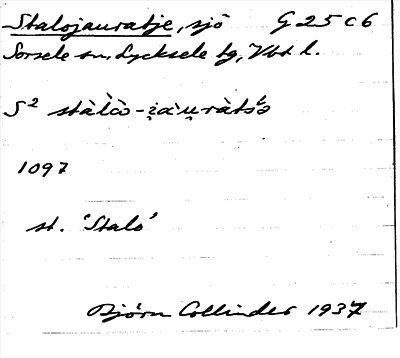 Stalojauratje, sjö G 25 c 6
Sorsele sn, Lycksele tg, Vbt l.
S² stàlò-i̯au̯ràtsʹə
1097
st. 'Stalo'
Björn Collinder 1937